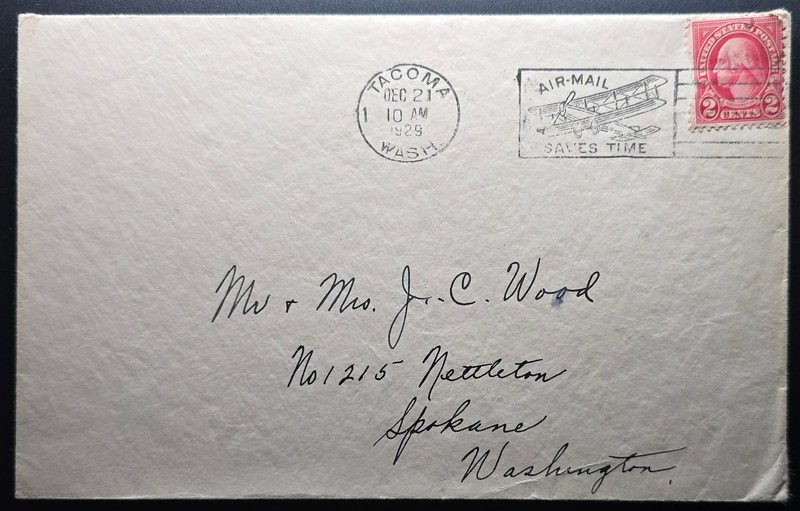 TACOMA
DEC 21
1 10 AM
1929
WASH.
AIR-MAIL
SAVES TIME
UNITED STATES POSTAGE
2 CENTS 2
Mr & Mrs. J. C. Wood
No 1215 Nettleton
Spokane
Washington.